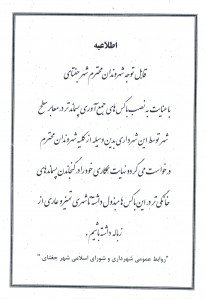 اطلاعیه
قابل توجه شهروندان محترم شهر جغتای
با عنایت به نصب باکس های جمع آوری پسماند تر در معابر سطح
شهر توسط این شهرداری بدین وسیله از کلیه شهروندان محترم
درخواست می گردد نهایت همکاری خود را در گنجاندن پسماندهای
خانگی تر در این باکس ها مبذول داشته تا شهری تمیز و عاری از
زباله داشته باشیم .
"روابط عمومی شهرداری و شورای اسلامی شهر جغتای"